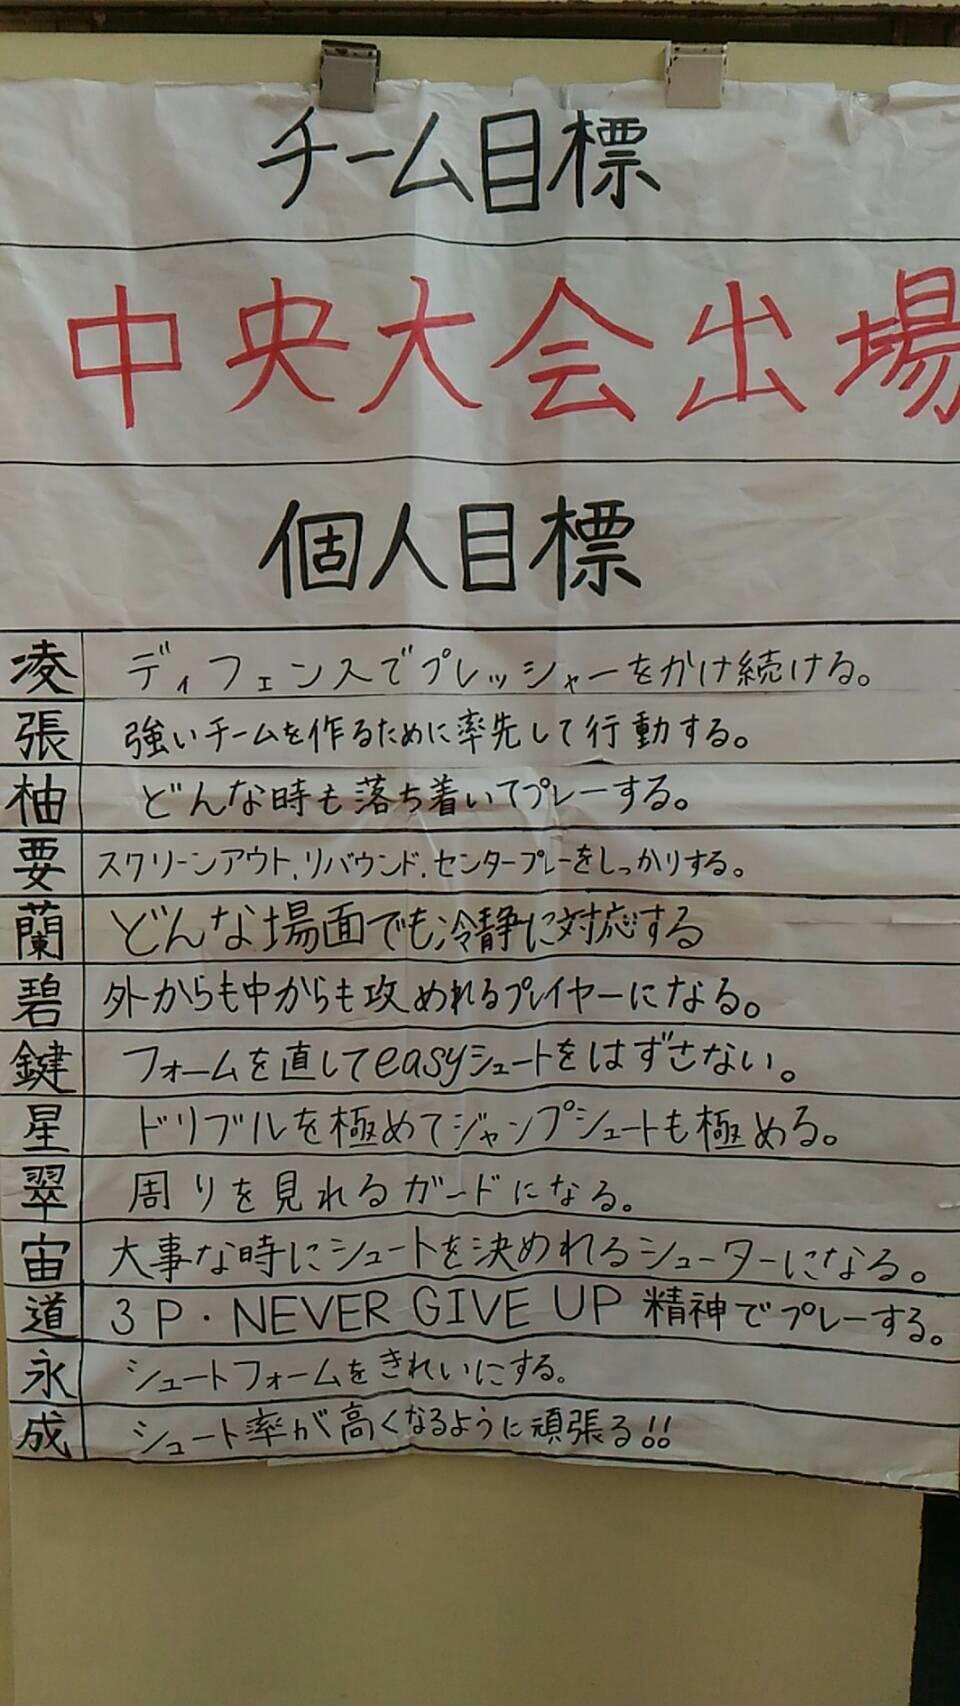 チーム目標
中央大会出場
個人目標
凌 ディフェンスでプレッシャーをかけ続ける。
張 強いチームを作るために率先して行動する。
柚 どんな時も落ち着いてプレーする。
要 スクリーンアウト,リバウンド,センタープレーをしっかりする。
蘭 どんな場面でも冷静に対応する
碧 外からも中からも攻めれるプレイヤーになる。
鍵 フォームを直してeasyシュートをはずさない。
星 ドリブルを極めてジャンプシュートも極める。
翠 周りを見れるガードになる。
宙 大事な時にシュートを決めれるシューターになる。
道 3P・NEVER GIVE UP 精神でプレーする。
永 シュートフォームをきれいにする。
成 シュート率が高くなるように頑張る!!